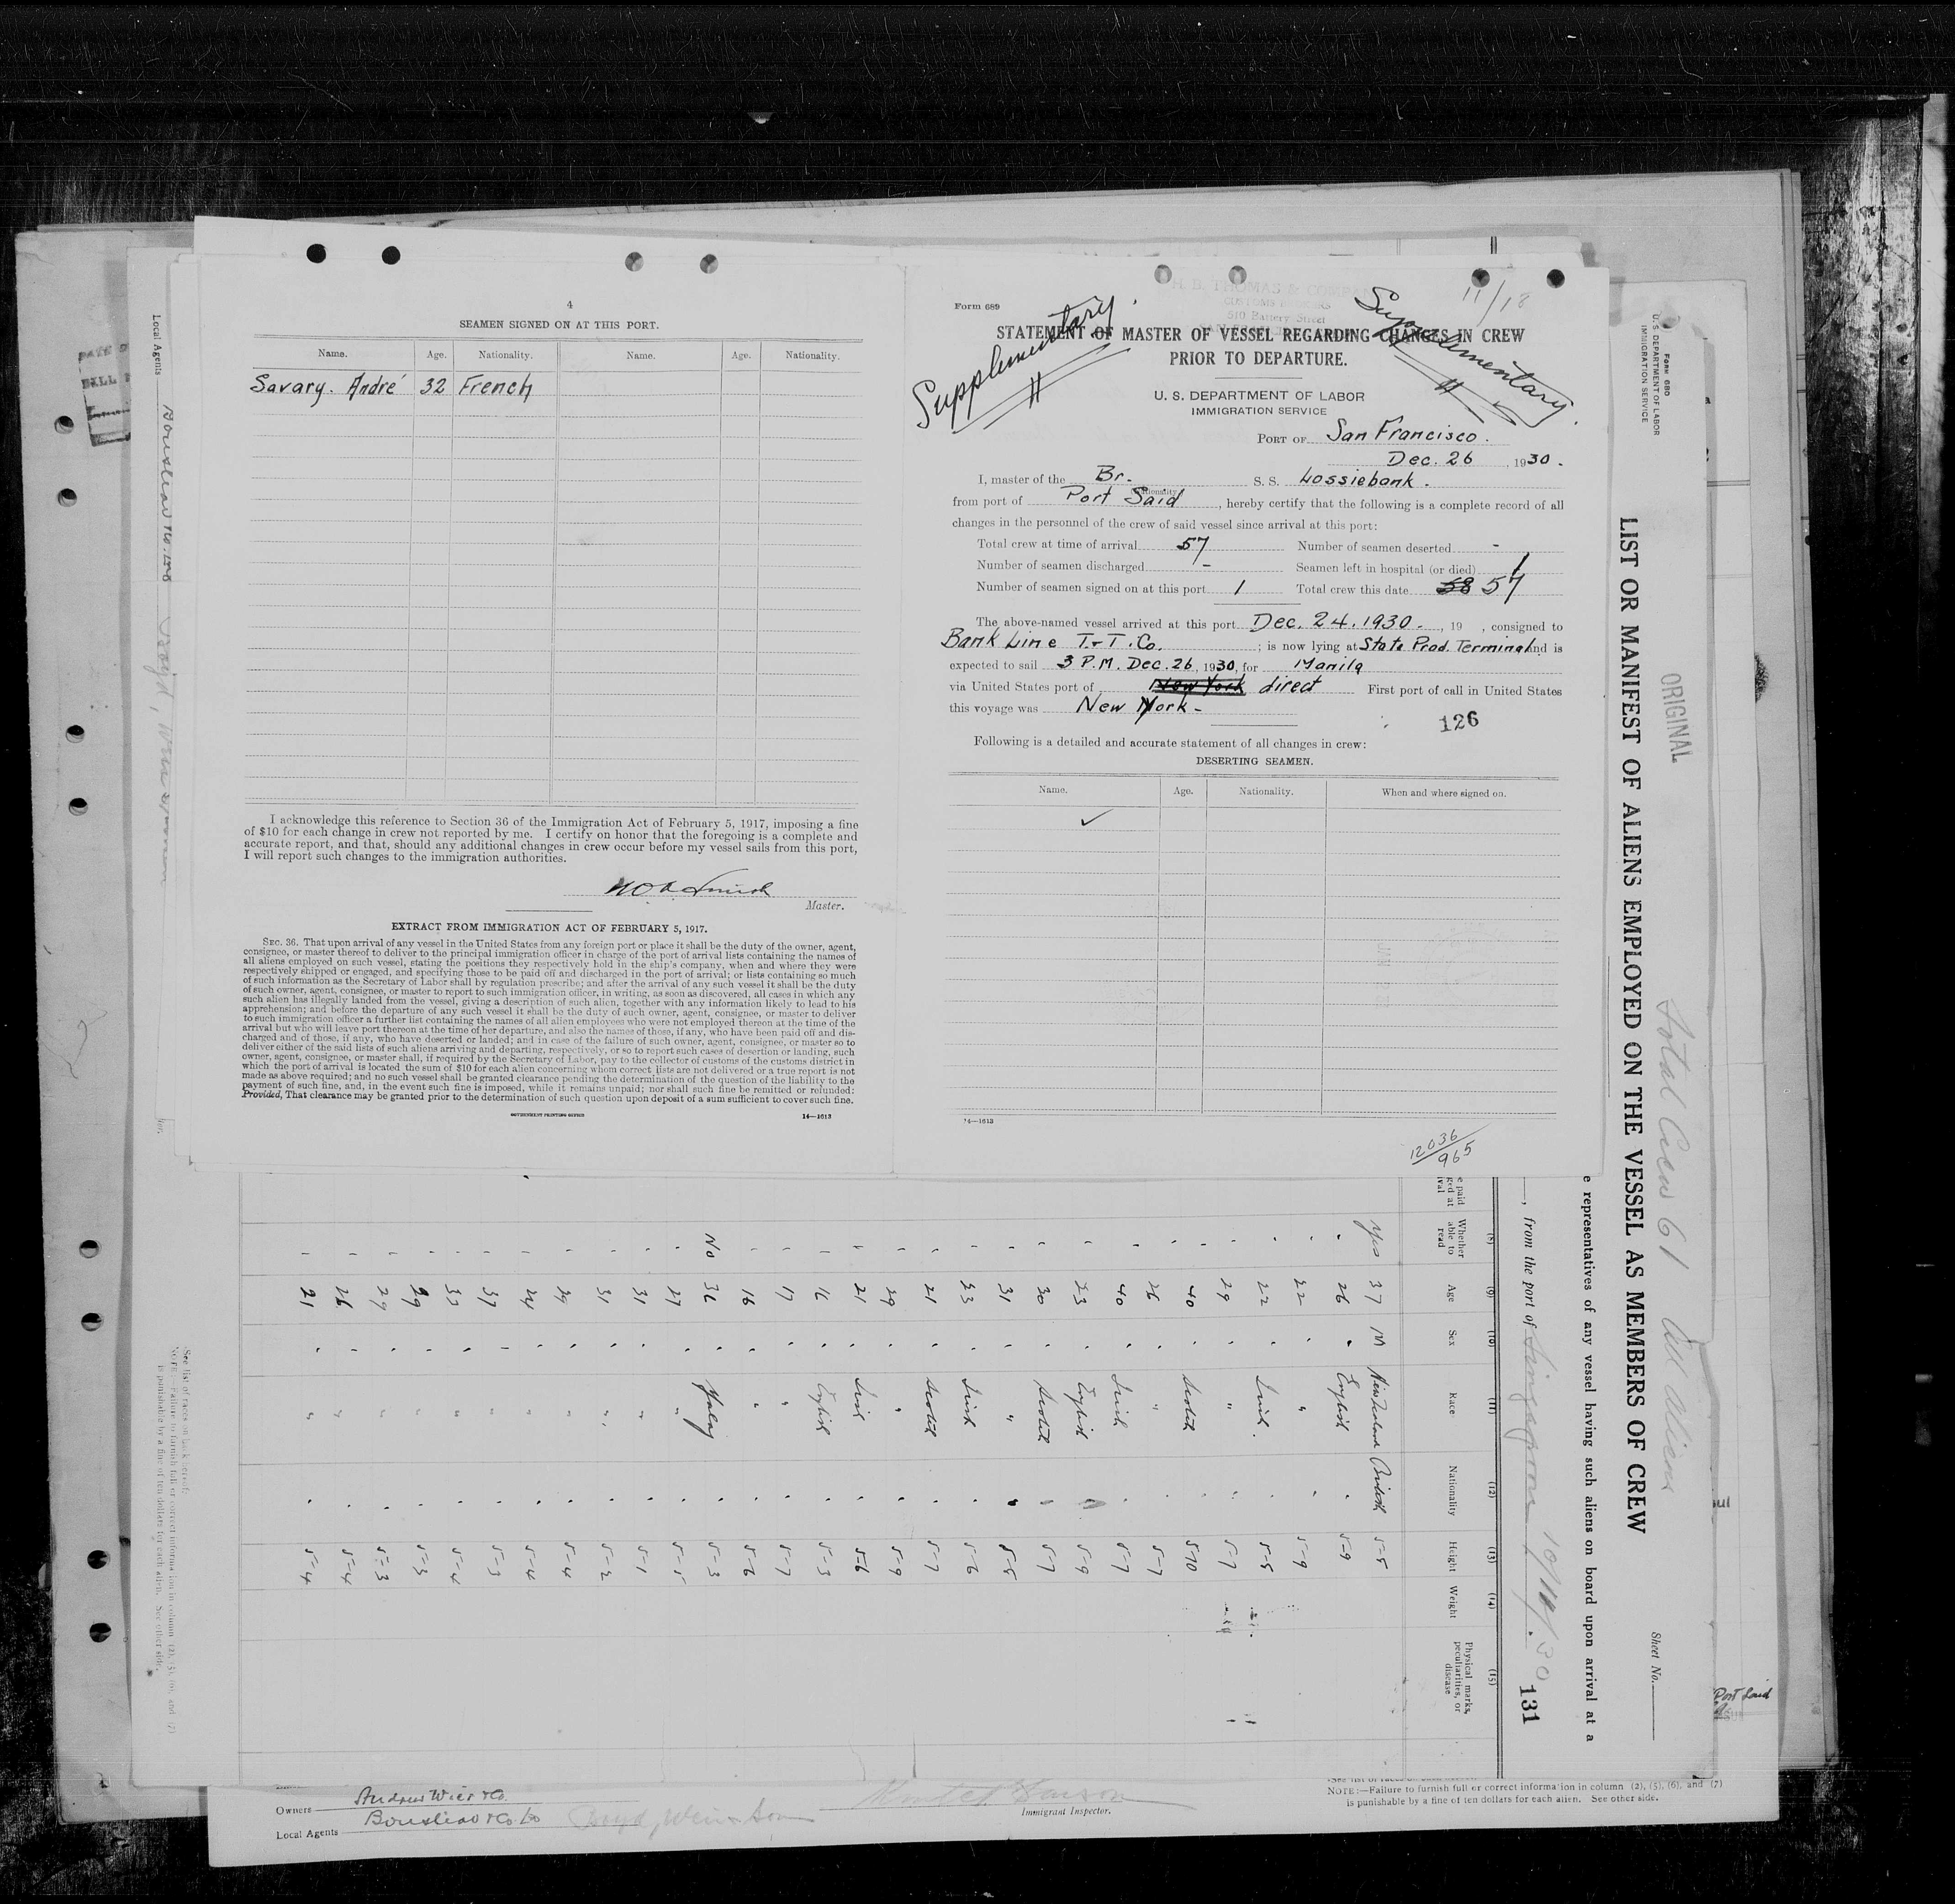 4
SEAMEN SIGNED ON AT THIS PORT.
Name. Age. Nationality. Name. Age. Nationality.
Savary. André 32 French
I acknowledge this reference to Section 36 of the Immigration Act of February 5, 1917, imposing a fine
of $10 for each change in crew not reported by me. I certify on honor that the foregoing is a complete and
accurate report, and that, should any additional changes in crew occur before my vessel sails from this port,
I will report such changes to the immigration authorities.
Master.
EXTRACT FROM IMMIGRATION ACT OF FEBRUARY 5, 1917.
SEC. 36. That upon arrival of any vessel in the United States from any foreign port or place it shall be the duty of the owner, agent,
consignee, or master thereof to deliver to the principal immigration officer in charge of the port of arrival lists containing the names of
all aliens employed on such vessel, stating the positions they respectively hold in the ship's company, when and where they were
respectively shipped or engaged, and specifying those to be paid off and discharged in the port of arrival; or lists containing so much
of such information as the Secretary of Labor shall by regulation prescribe; and after the arrival of any such vessel it shall be the duty
of such owner, agent, consignee, or master to report to such immigration officer, in writing, as soon as discovered, all cases in which any
such alien has illegally landed from the vessel, giving a description of such alien, together with any information likely to lead to his
apprehension; and before the departure of any such vessel it shall be the duty of such owner, agent, consignee, or master to deliver
to such immigration officer a further list containing the names of all alien employees who were not employed thereon at the time of the
arrival but who will leave port thereon at the time of her departure, and also the names of those, if any, who have been paid off and dis-
charged and of those, if any, who have deserted or landed; and in case of the failure of such owner, agent, consignee, or master so to
deliver either of the said lists of such aliens arriving and departing, respectively, or so to report such cases of desertion or landing, such
owner, agent, consignee, or master shall, if required by the Secretary of Labor, pay to the collector of customs of the customs district in
which the port of arrival is located the sum of $10 for each alien concerning whom correct lists are not delivered or a true report is not
made as above required; and no such vessel shall be granted clearance pending the determination of the question of the liability to the
payment of such fine, and, in the event such fine is imposed, while it remains unpaid; nor shall such fine be remitted or refunded:
Provided, That clearance may be granted prior to the determination of such question upon deposit of a sum sufficient to cover such fine.
GOVERNMENT PRINTING OFFICE 14—1613
Form 689
H. B. THOMAS & COMPANY
CUSTOMS BROKERS
510 Battery Street
11/18
Supplementary
Supplementary
STATEMENT OF MASTER OF VESSEL REGARDING CHANGES IN CREW
PRIOR TO DEPARTURE.
U. S. DEPARTMENT OF LABOR
IMMIGRATION SERVICE
PORT OF San Francisco.
Dec. 26, 1930.
I, master of the Br. S. S. Lossiebank.
(Nationality)
from port of Port Said, hereby certify that the following is a complete record of all
changes in the personnel of the crew of said vessel since arrival at this port:
Total crew at time of arrival 57 Number of seamen deserted -
Number of seamen discharged - Seamen left in hospital (or died) 1
Number of seamen signed on at this port 1 Total crew this date 58 57
The above-named vessel arrived at this port Dec. 24. 1930., 19 , consigned to
Bank Line T. & T. Co. ; is now lying at State Prod. Terminal and is
expected to sail 3 P.M. Dec. 26, 1930, for Manila
via United States port of New York direct First port of call in United States
this voyage was New York -
126
Following is a detailed and accurate statement of all changes in crew:
DESERTING SEAMEN.
Name. Age. Nationality. When and where signed on.
14—1613
12036/965
Form 680
U. S. DEPARTMENT OF LABOR
IMMIGRATION SERVICE
ORIGINAL
Total Crew 61 All Aliens
Sheet No.
LIST OR MANIFEST OF ALIENS EMPLOYED ON THE VESSEL AS MEMBERS OF CREW
e representatives of any vessel having such aliens on board upon arrival at a
, from the port of Singapore
131
(8) (9) (10) (11) (12) (13) (14) (15)
Whether able to read Age Sex Race Nationality Height Weight Physical marks, peculiarities, or disease
Yes 37 M New Zealand British 5-5
26 English 5-9
22 5-9
22 Irish 5-8
29 5-7
40 Scotch 5-10
26 5-7
40 Irish 5-7
23 English 5-9
30 Scotch 5-7
31 5-8
23 Irish 5-6
21 Scotch 5-7
29 5-9
21 Irish 5-6
16 English 5-3
17 5-7
16 5-6
No 36 Malay 5-3
27 5-5
31 5-1
31 5-2
29 5-4
24 5-4
37 5-3
37 5-4
29 5-3
29 5-3
26 5-4
21 5-4
Local Agents Boustead & Co. Ltd
Owners Andrew Weir & Co.
Local Agents Boustead & Co Ltd Boyd, Weir & Son
Immigrant Inspector.
NOTE:—Failure to furnish full or correct information in column (2), (5), (6), and (7)
is punishable by a fine of ten dollars for each alien. See other side.
Port Said